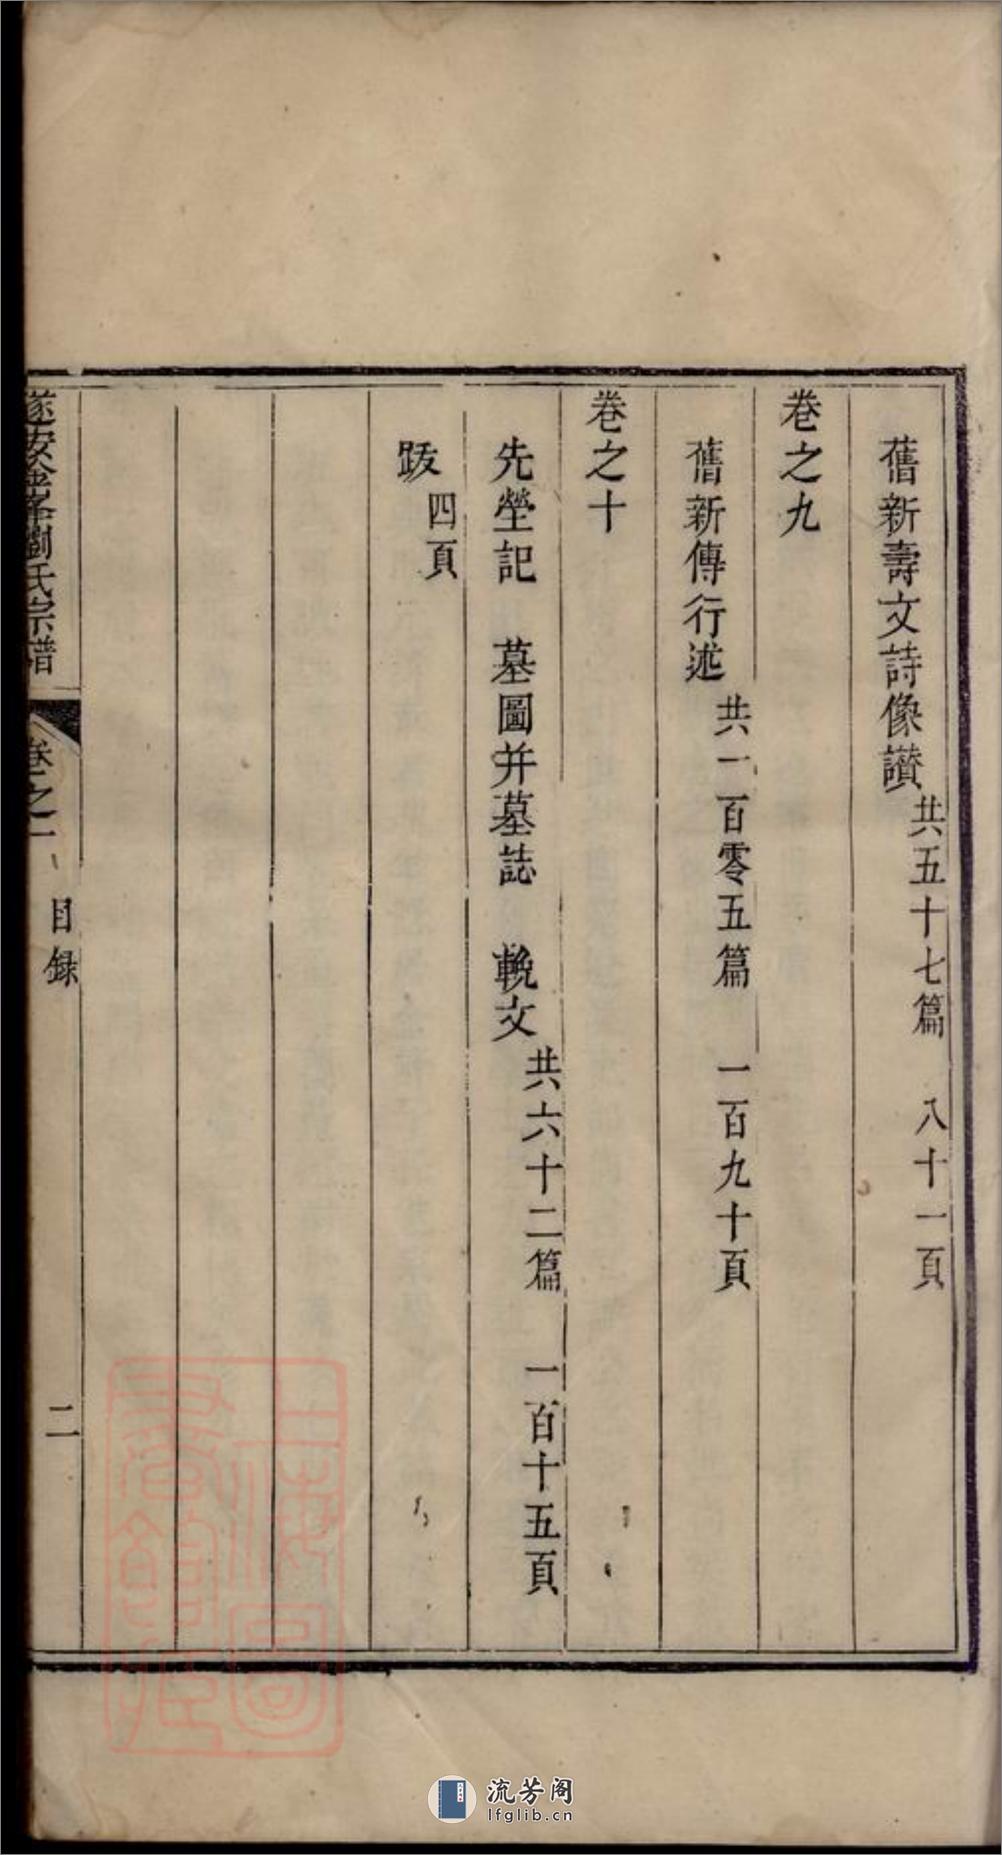 舊新壽文詩像讃共五十七篇　八十一頁
卷之九
舊新傳行述共一百零五篇　一百九十頁
卷之十
先塋記　墓圖并墓誌　輓文共六十二篇　一百十五頁
跋四頁
遂安金峯劉氏宗譜　卷之一　目録　二
上海圖書館藏
流芳阁
lfglib.cn